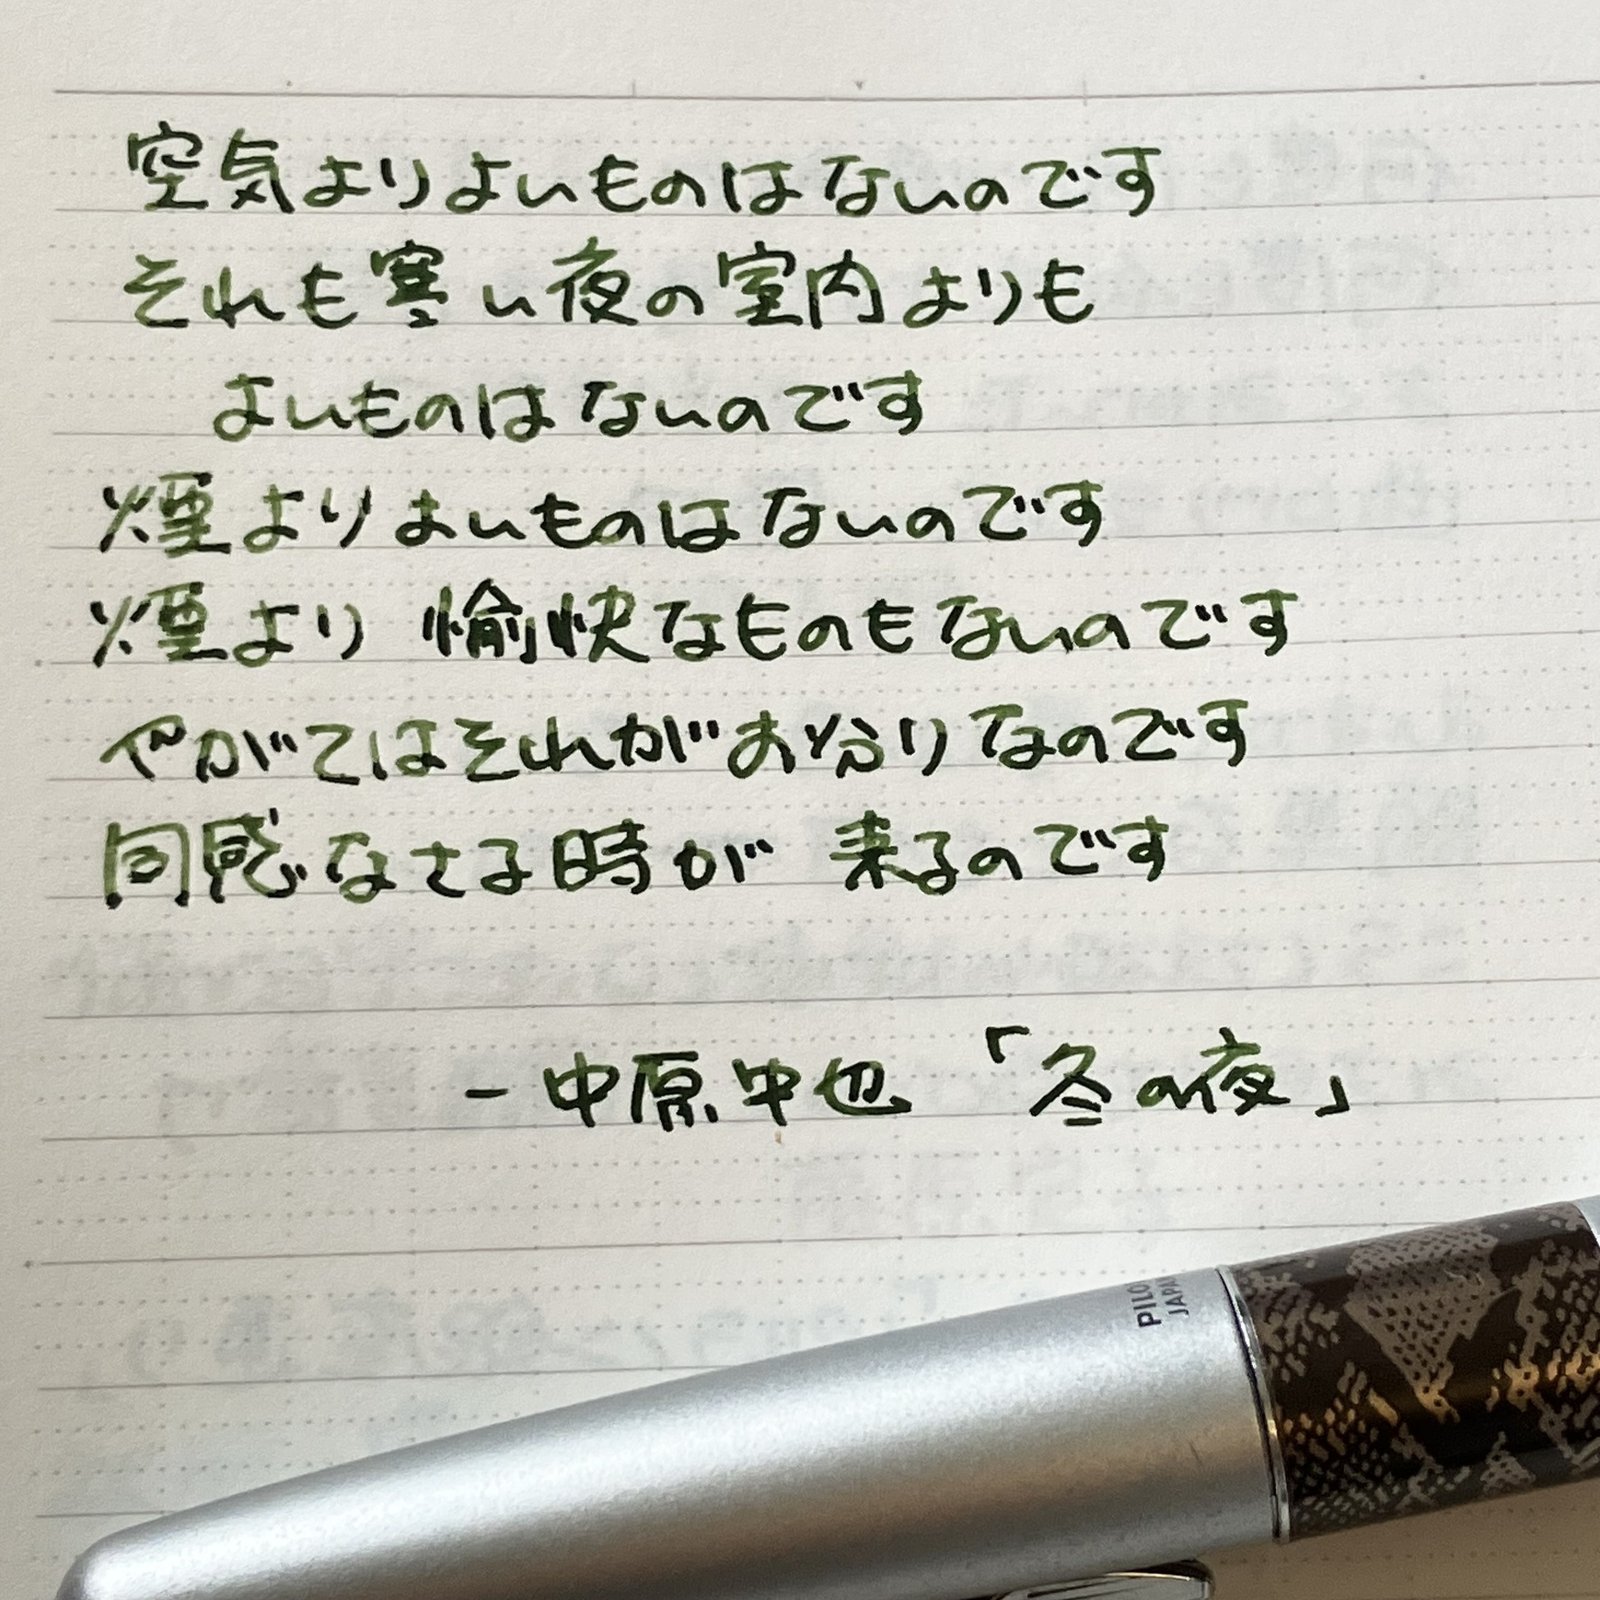 空気よりよいものはないのです
それも寒い夜の室内よりも
よいものはないのです
煙よりよいものはないのです
煙より 愉快なものもないのです
やがてはそれがお分りなのです
同感なさる時が 来るのです
－中原中也 「冬の夜」
PILO
JAPA